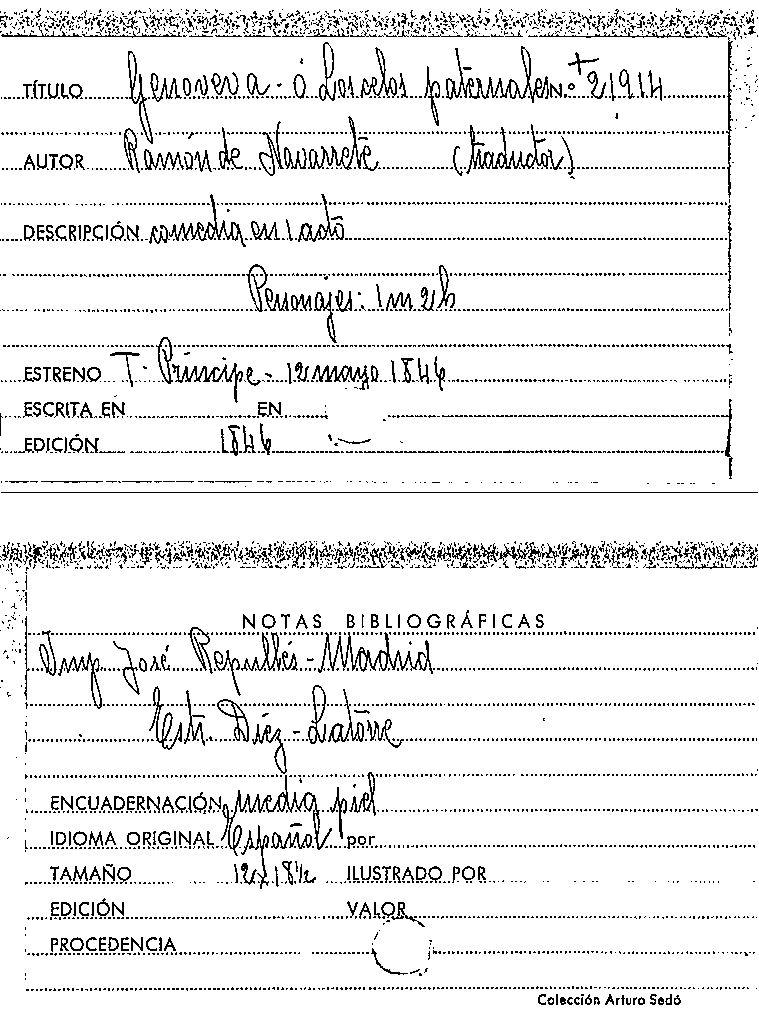 TÍTULO Genoveva - ó Los celos paternales N.º + 21914
AUTOR Ramón de Navarrete (traductor)
DESCRIPCIÓN comedia en 1 acto
Personajes: 1m 2h
ESTRENO T. Príncipe - 12 mayo 1846
ESCRITA EN EN
EDICIÓN 1846
NOTAS BIBLIOGRÁFICAS
Imp José Repullés - Madrid
Estr. Díez - Latorre
ENCUADERNACIÓN media piel
IDIOMA ORIGINAL Español por
TAMAÑO 12x18½ ILUSTRADO POR
EDICIÓN VALOR
PROCEDENCIA
Colección Arturo Sedó